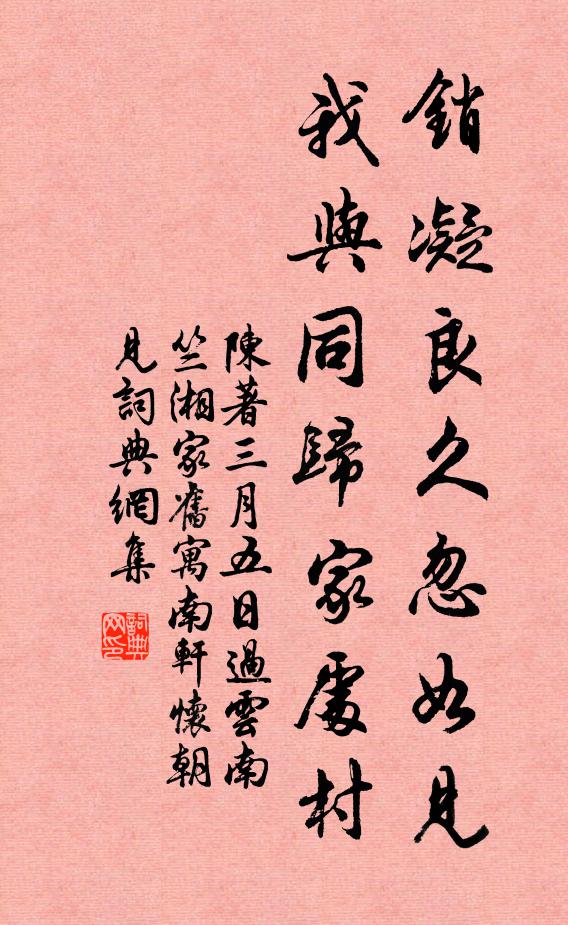 銷凝良久忽如見
我與同歸家處村
陳著三月五日過雲南
竺湘家舊寓南軒懷朝
見詞典網集
詞典
网印